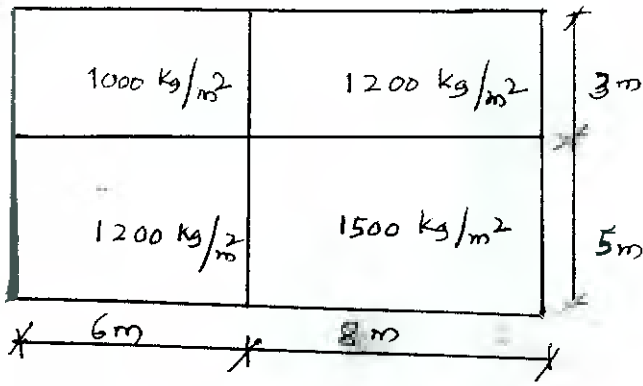 1000 kg/m² 1200 kg/m² 3m
1200 kg/m² 1500 kg/m² 5m
6m 8m